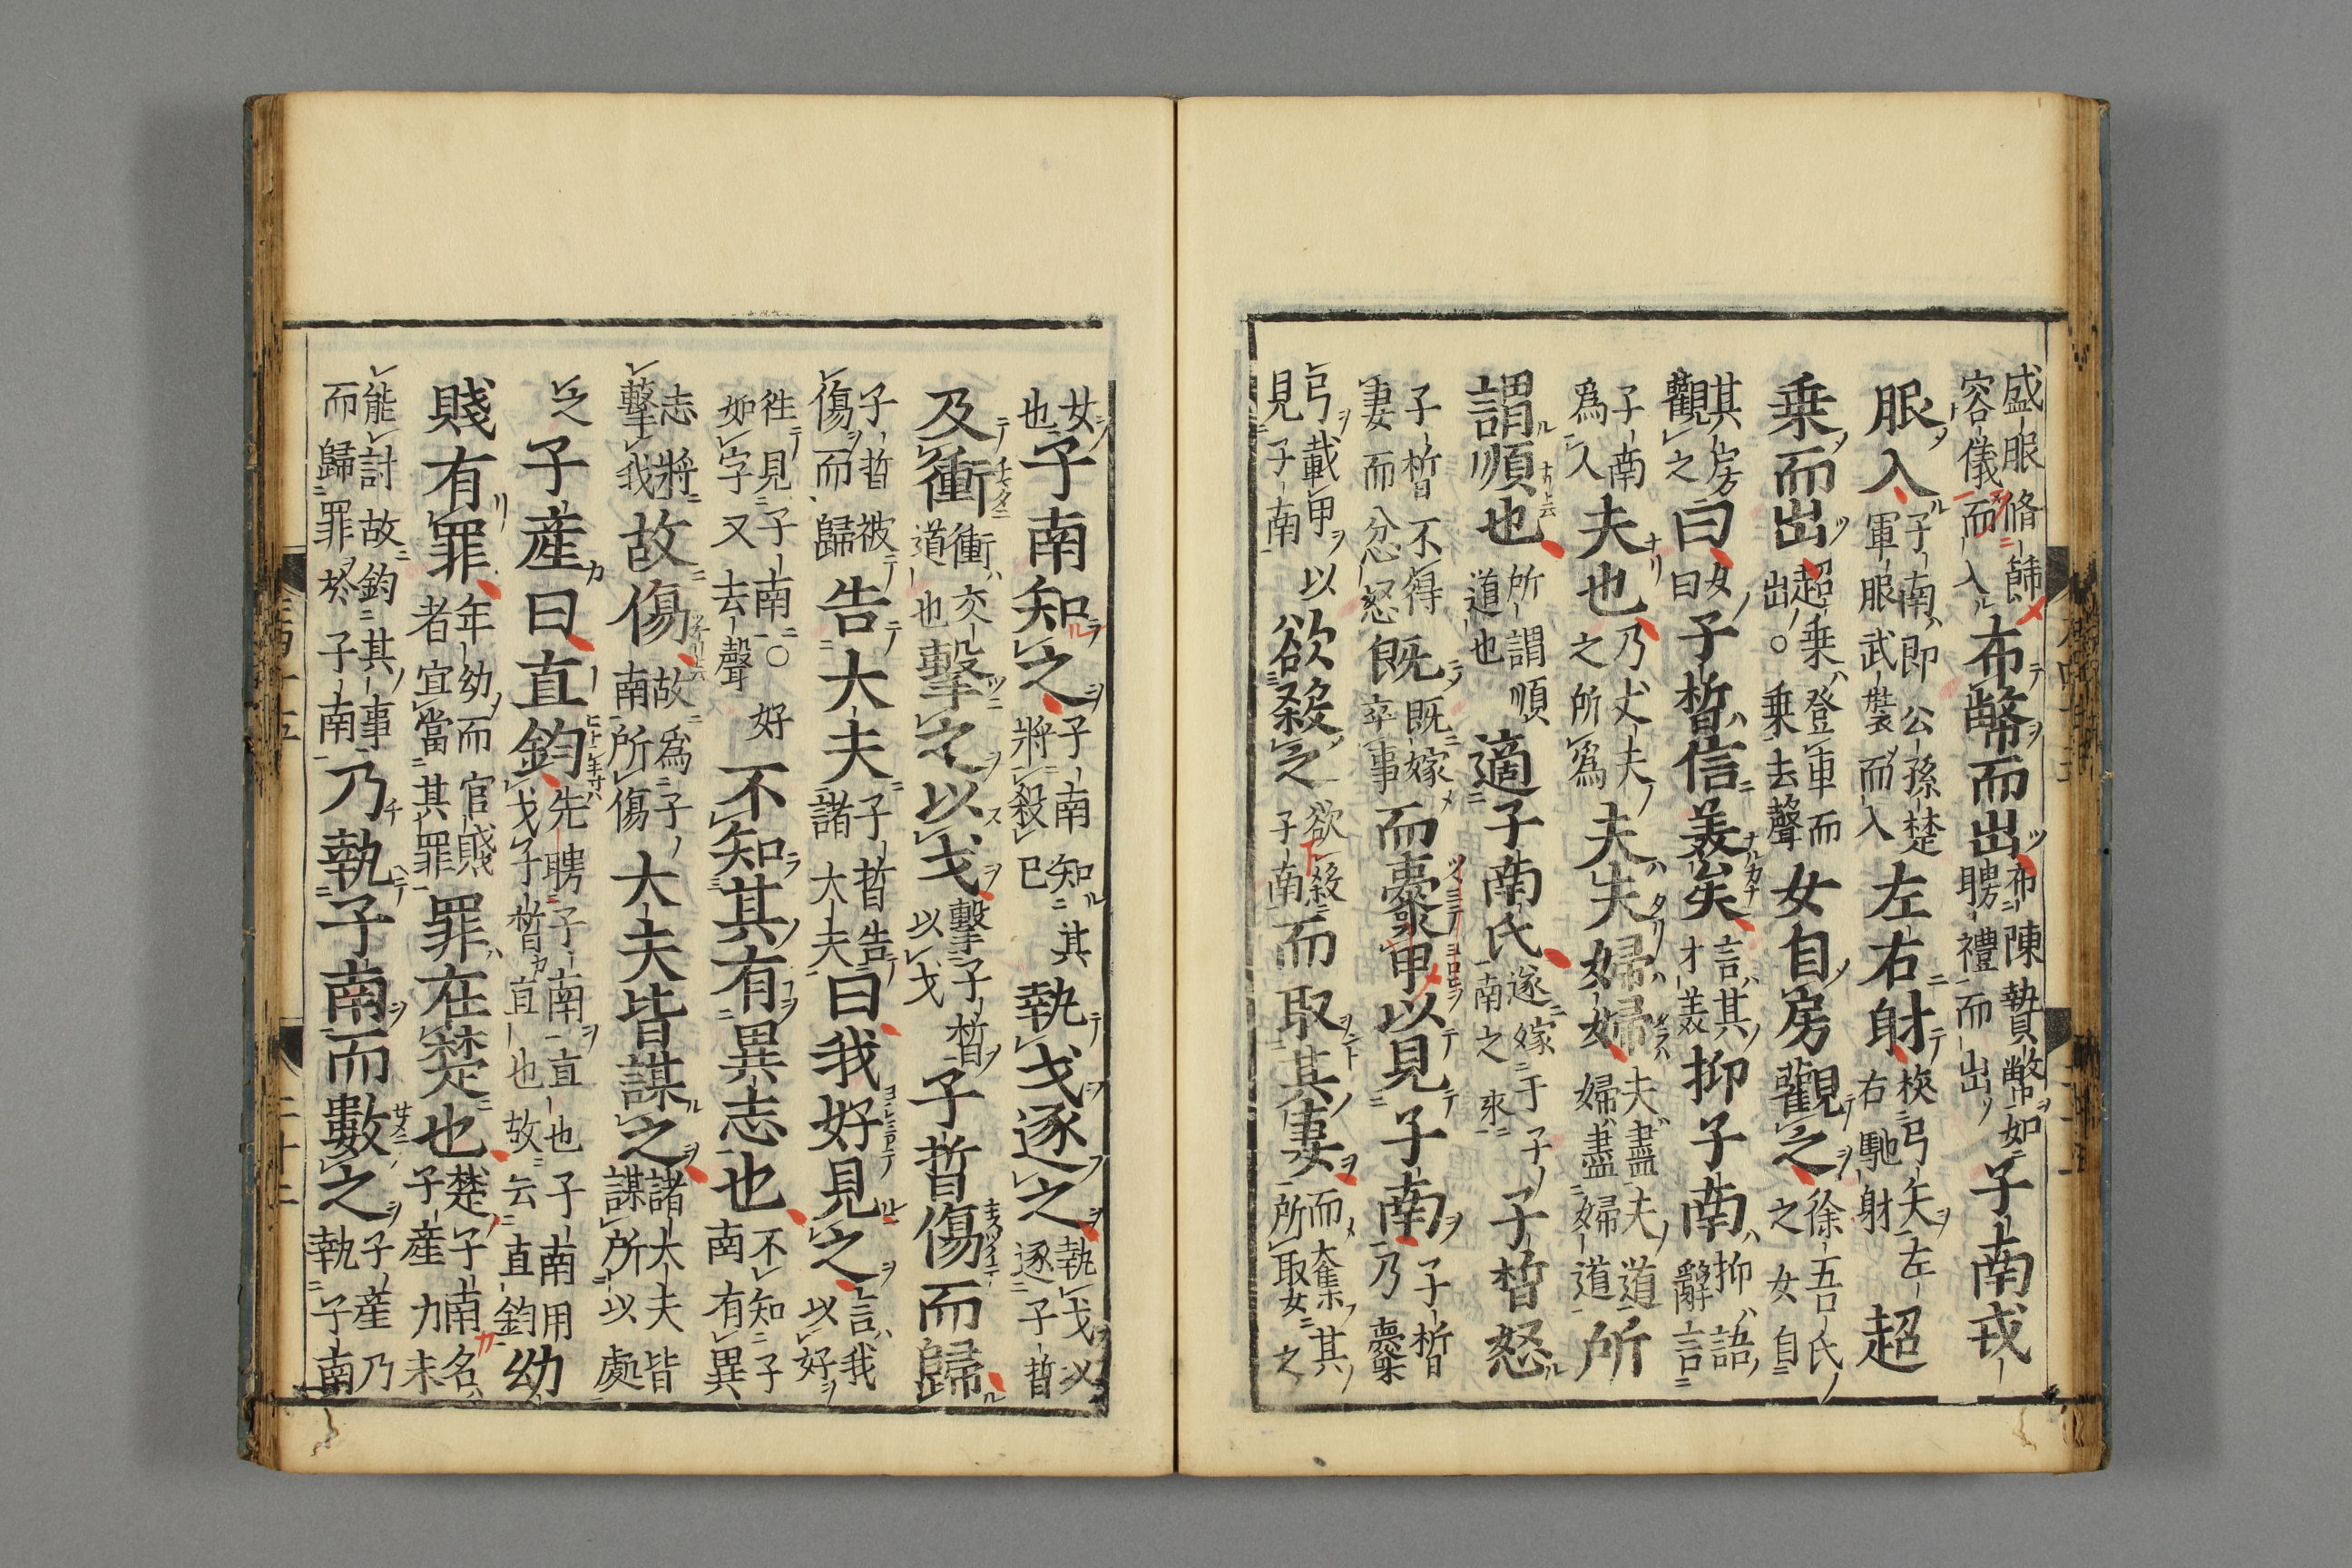 盛服脩飾容儀而入布幣而出布陳贄幣如聘禮而出子南戎
服入子南即公孫楚軍服武裝而入左右射挾弓矢左右馳射超
乗而出超乗登車而出○乗去聲女自房觀之徐吾氏之女自
其房觀之曰女曰子晳信美矣言其才美抑子南抑語辭言
子南爲人夫也乃丈夫之所爲夫夫婦婦夫盡夫道婦盡婦道所
謂順也所謂順道也適子南氏遂嫁于子南之家子晳怒
子晳不得妻而忿怒既既嫁卒事而櫜甲以見子南子晳乃櫜
弓載甲以見子南欲殺之欲殺子南而取其妻而奪其所取女之
女也子南知之子南知其將殺己執戈逐之執戈以逐子晳
及衝衝交道也擊之以戈擊子晳以戈子晳傷而歸
子晳被傷而歸告大夫子晳告諸大夫曰我好見之言我以好
徃見子南○好如字又去聲不知其有異志也不知子南有異
志將擊我故傷故爲子南所傷大夫皆謀之諸大夫皆謀所以處
之子産曰直鈞先聘子南直也子南用戈子晳直也故云直鈞幼
賤有罪年幼而官賤者宜當其罪罪在楚也楚子南名子産力未
能討故鈞其事而歸罪於子南乃執子南而數之子産乃執子南